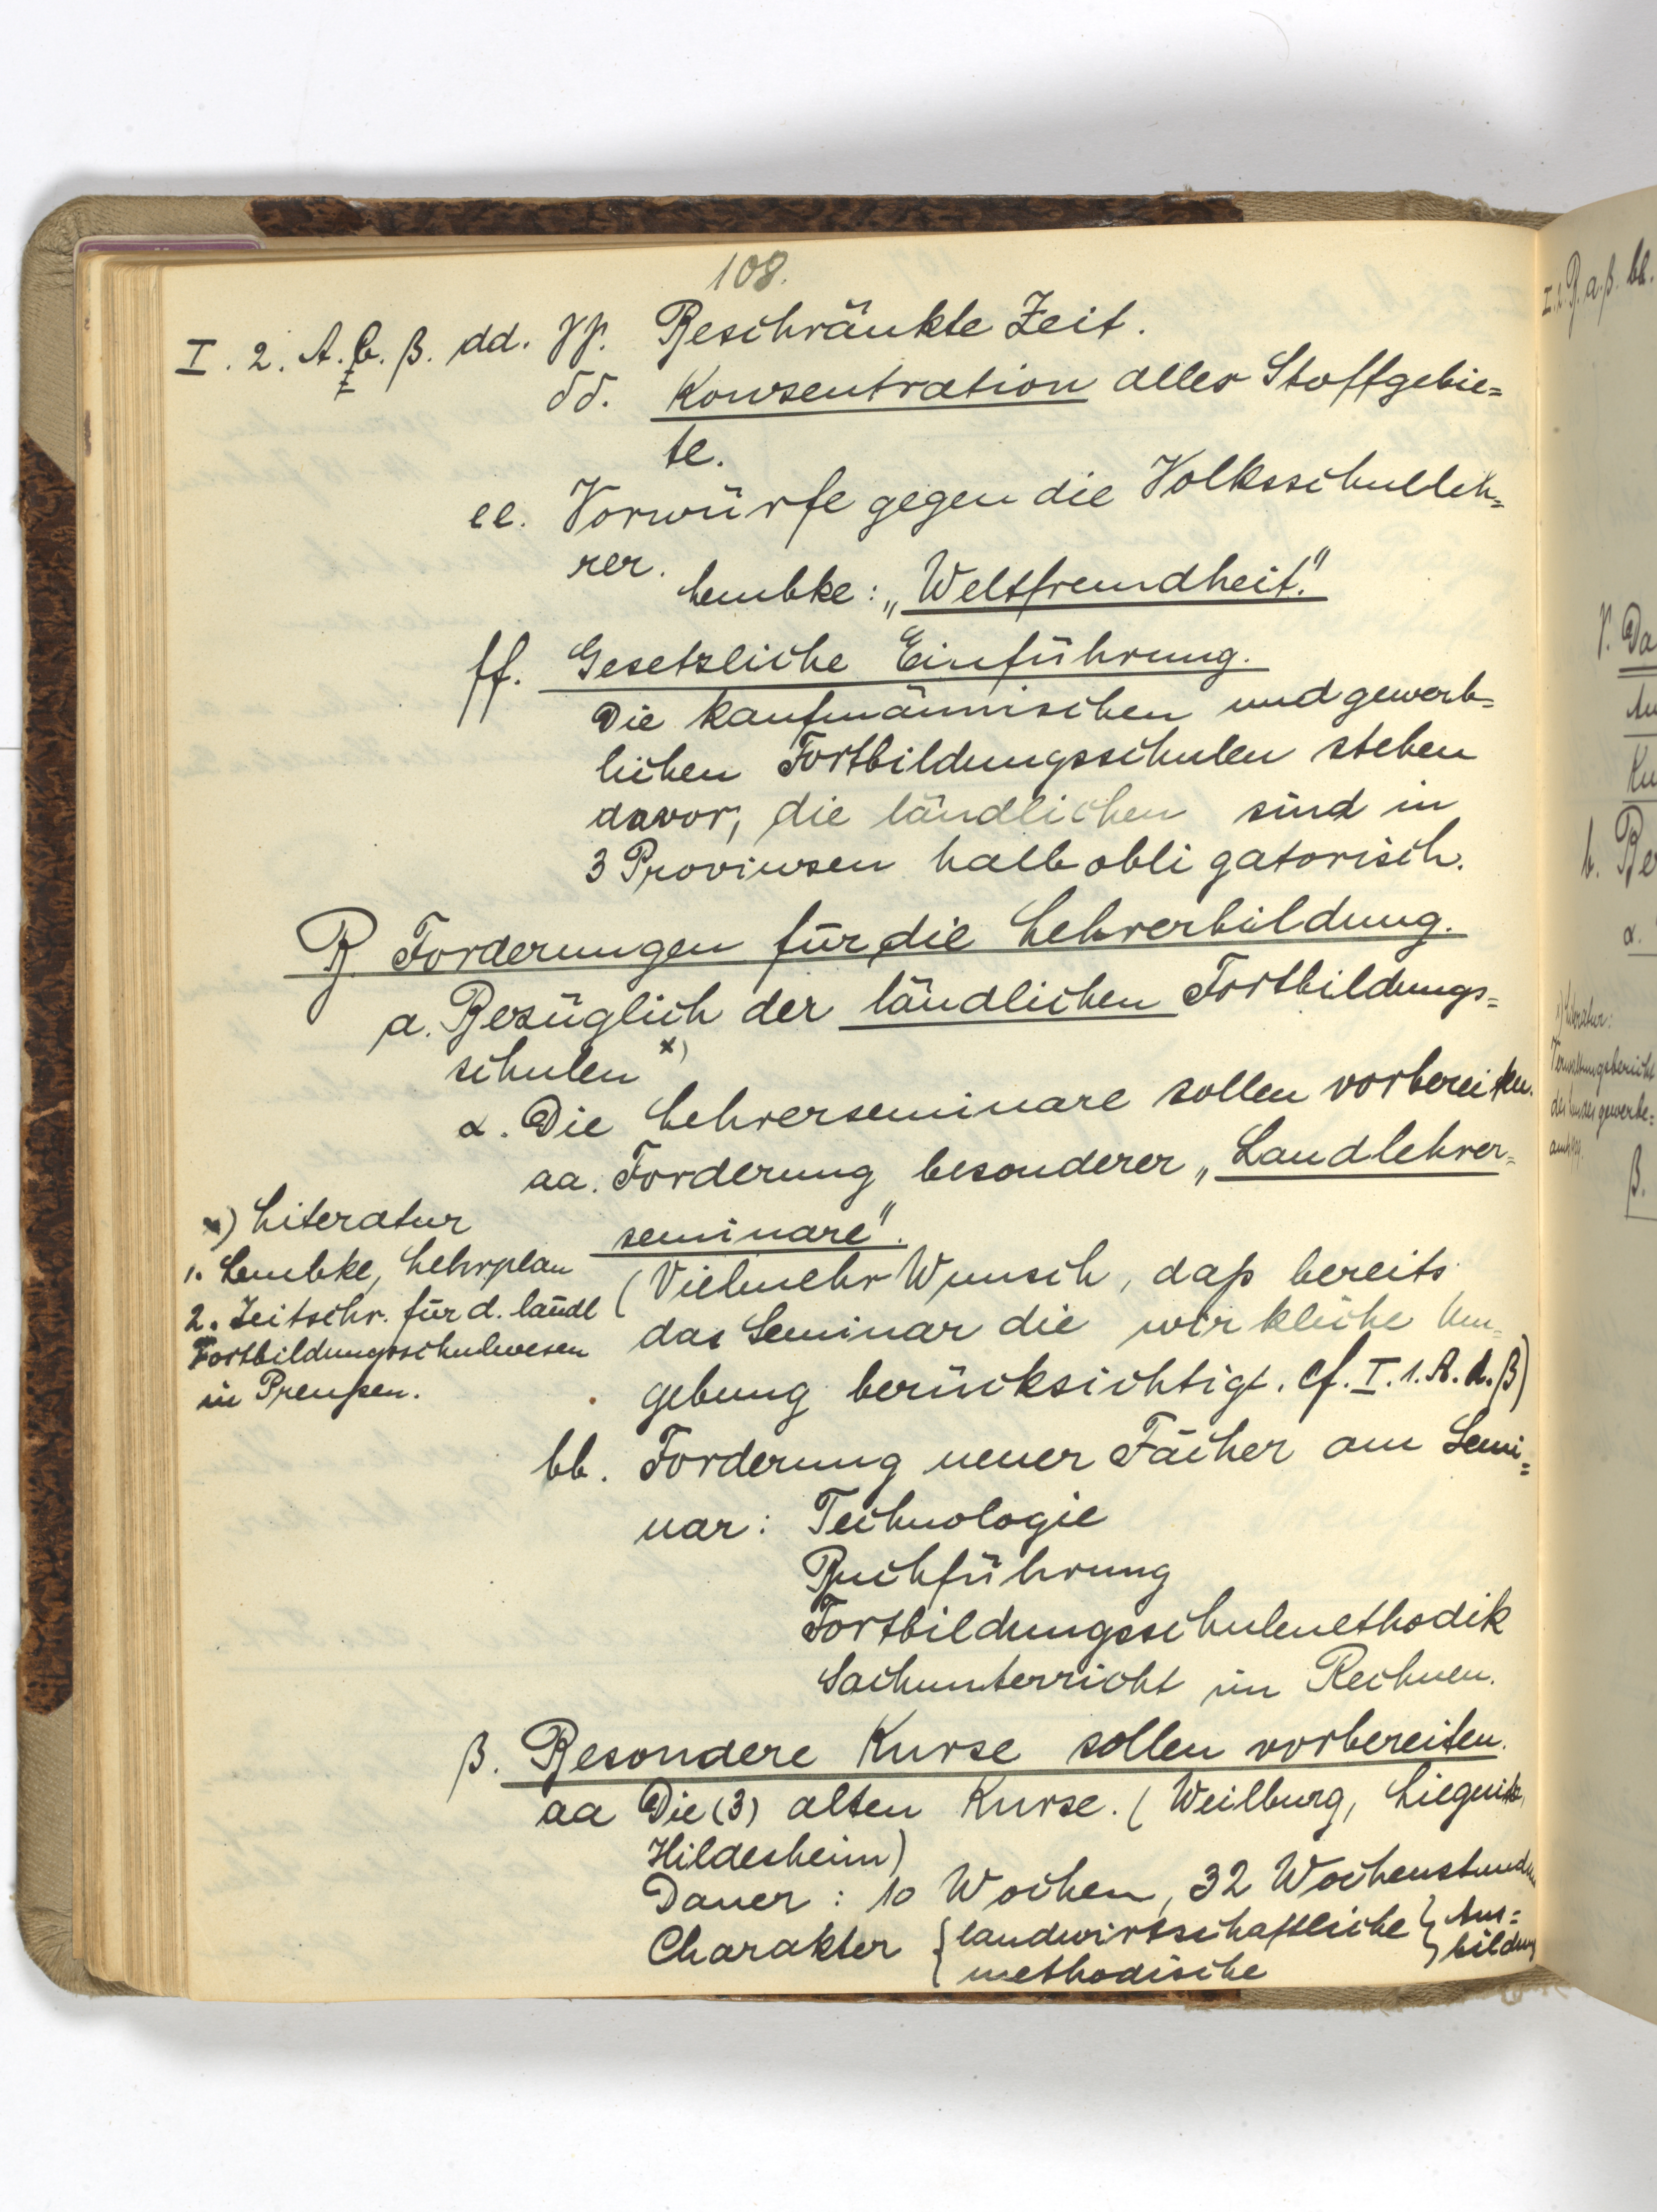 108.
I. 2. A. b. β. dd. γγ. Beschränkte Zeit.
δδ. Konzentration aller Stoffgebie=
te.
ee. Vorwürfe gegen die Volksschulleh=
rer.
Lembke: „Weltfremdheit."
ff. Gesetzliche Einführung.
Die kaufmännischen und gewerb=
lichen Fortbildungsschulen stehen
davor, die ländlichen sind in
3 Provinzen halbobligatorisch.
B. Forderungen für die Lehrerbildung.
a. Bezüglich der ländlichen Fortbildungs=
schulen x)
α. Die Lehrerseminare sollen vorbereiten.
aa. Forderung besonderer „Landlehrer=
seminare".
(Vielmehr Wunsch, daß bereits
das Seminar die wirkliche Um=
gebung berücksichtigt. cf. I. 1. A. b. β)
x) Literatur
1. Lembke, Lehrplan
2. Zeitschr. für d. ländl
Fortbildungsschulwesen
in Preußen.
bb. Forderung neuer Fächer am Semi=
nar: Technologie
Buchführung
Fortbildungsschulmethodik
Sachunterricht im Rechnen.
β. Besondere Kurse sollen vorbereiten.
aa Die (3) alten Kurse. (Weilburg, Liegnitz,
Hildesheim)
Dauer: 10 Wochen, 32 Wochenstunden
Charakter { landwirtschaftliche } Aus=
{ methodische } bildung
I. 2. B. a. β. bb.
γ. Da
b. Be
α.
x) Literatur:
Verwaltungsbericht
des Landesgewerbe=
β.